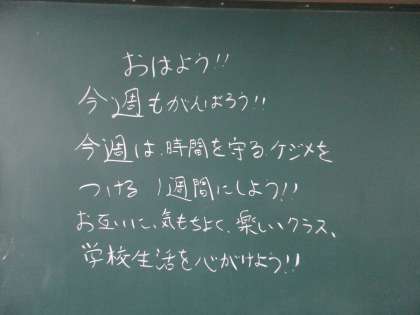 おはよう!!
今週もがんばろう!!
今週は、時間を守る、ケジメを
つける 1週間にしよう!!
お互いに、気もちよく、楽しいクラス、
学校生活を心がけよう!!